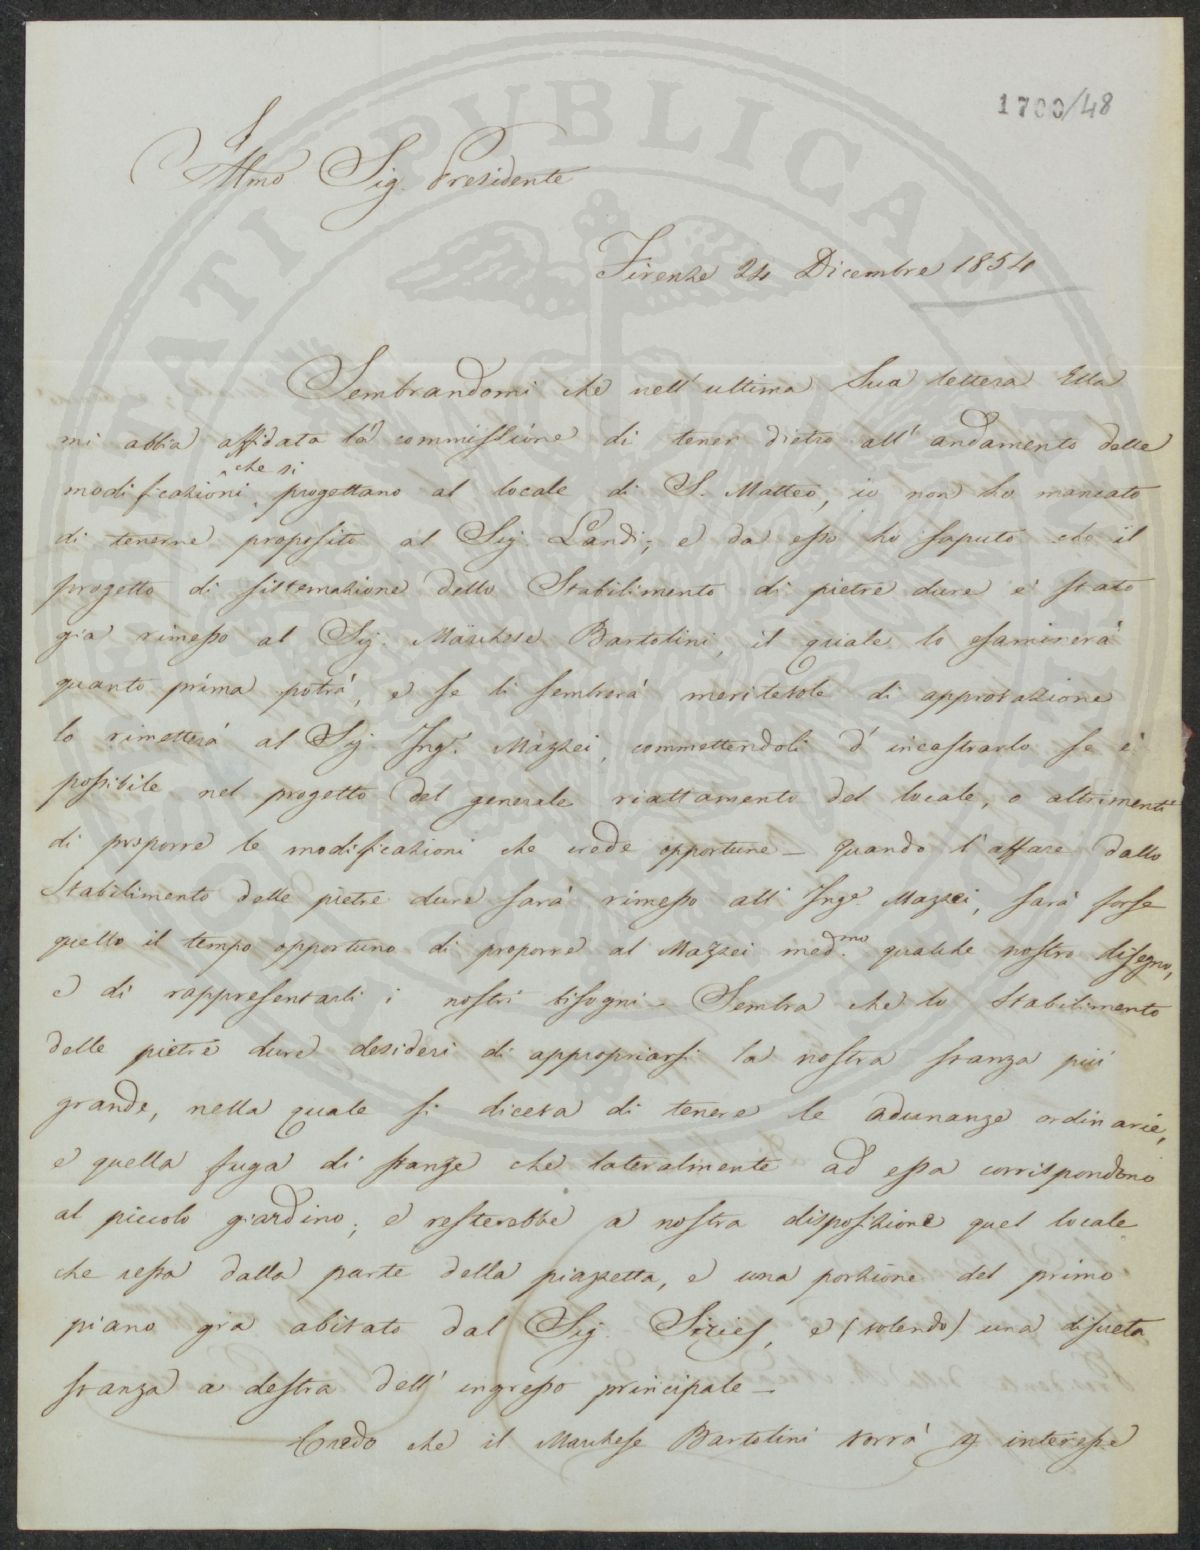 1700/48
Illmo Sig. Presidente
Firenze 24 Dicembre 1854
Sembrandomi che nell'ultima Sua lettera Ella
mi abbia affidata la commissione di tener dietro all'andamento delle
modificazioni che si progettano al locale di S. Matteo, io non ho mancato
di tenerne proposito al Sig. Landi, e da esso ho saputo che il
progetto di sistemazione dello Stabilimento di pietre dure è stato
gia rimesso al Sig. Marchese Bartolini, il quale lo esaminerà
quanto prima potrà, e se li sembrerà meritevole di approvazione
lo rimetterà al Sig. Ingre. Mazzei, commettendoli d'incastrarlo se è
possibile nel progetto del generale riattamento del locale, o altrimenti
di proporre le modificazioni che crede opportune _ quando l'affare dello
Stabilimento delle pietre dure sarà rimesso all'Inge. Mazzei, sarà forse
quello il tempo opportuno di proporre al Mazzei med.mo qualche nostro disegno,
e di rappresentarli i nostri bisogni _ Sembra che lo Stabilimento
delle pietre dure desideri di appropriarsi la nostra stanza più
grande, nella quale si diceva di tenere le adunanze ordinarie,
e quella fuga di stanze che lateralmente ad essa corrispondono
al piccolo giardino; e resterebbe a nostra disposizione quel locale
che resta dalla parte della piazzetta, e una porzione del primo
piano gia abitato dal Sig. Siries, e (volendo) una discreta
stanza a destra dell'ingresso principale _
Credo che il Marchese Bartolini vorrà interesse
STATI PUBLICAE